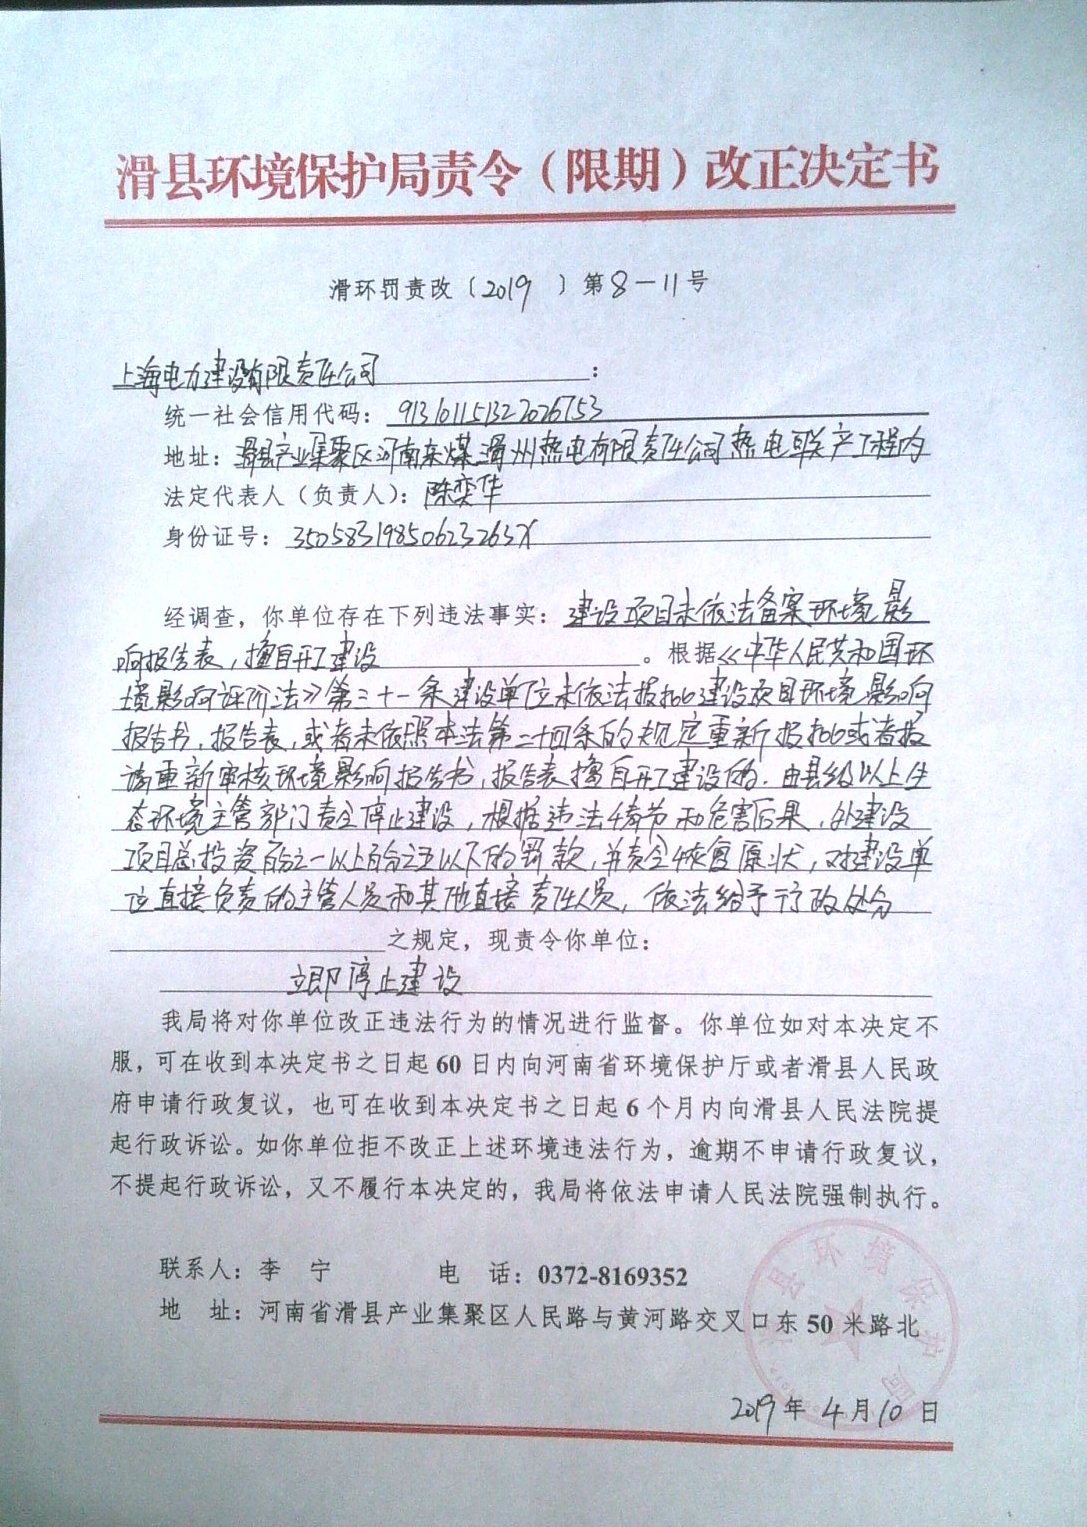 滑县环境保护局责令（限期）改正决定书
滑环罚责改〔2019 〕第8-11号
上海电力建设有限责任公司：
统一社会信用代码：913101151322026753
地址：滑县产业集聚区河南东煤滑州热电有限责任公司热电联产工程内
法定代表人（负责人）：陈奕华
身份证号：35058319850623263X
经调查，你单位存在下列违法事实：建设项目未依法备案环境影
响报告表，擅自开工建设。根据《中华人民共和国环
境影响评价法》第三十一条建设单位未依法报批建设项目环境影响
报告书，报告表，或者未依照本法第二十四条的规定重新报批或者报
请重新审核环境影响报告书，报告表擅自开工建设的，由县级以上生
态环境主管部门责令停止建设，根据违法情节和危害后果，处建设
项目总投资百分之一以上百分之五以下的罚款，并责令恢复原状，对建设单
位直接负责的主管人员和其他直接责任人员，依法给予行政处分
之规定，现责令你单位：
立即停止建设
我局将对你单位改正违法行为的情况进行监督。你单位如对本决定不
服，可在收到本决定书之日起60日内向河南省环境保护厅或者滑县人民政
府申请行政复议，也可在收到本决定书之日起6个月内向滑县人民法院提
起行政诉讼。如你单位拒不改正上述环境违法行为，逾期不申请行政复议，
不提起行政诉讼，又不履行本决定的，我局将依法申请人民法院强制执行。
联系人：李 宁 电 话：0372-8169352
地 址：河南省滑县产业集聚区人民路与黄河路交叉口东50米路北
滑县环境保护局
2019年4月10日